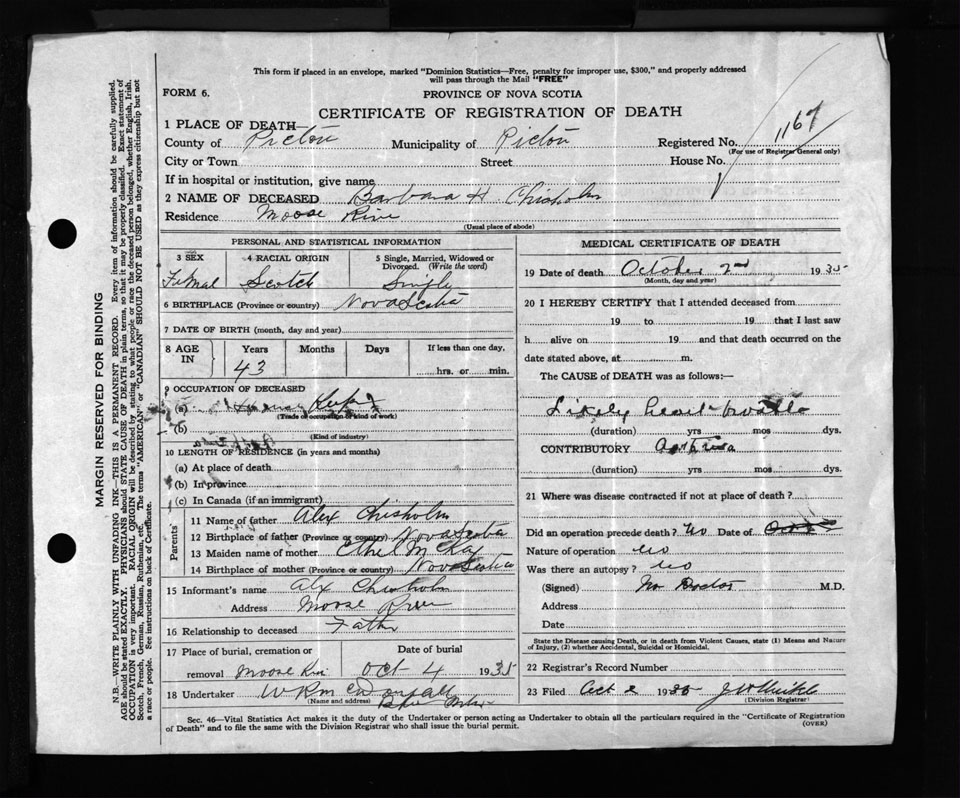 This form if placed in an envelope, marked "Dominion Statistics—Free, penalty for improper use, $300," and properly addressed
will pass through the Mail "FREE"
FORM 6.
PROVINCE OF NOVA SCOTIA
CERTIFICATE OF REGISTRATION OF DEATH
1167
1 PLACE OF DEATH—
County of Pictou Municipality of Pictou Registered No.
(For use of Registrar General only)
City or Town Street House No.
If in hospital or institution, give name
2 NAME OF DECEASED Barbara H Chisholm
Residence Moose River
(Usual place of abode)
PERSONAL AND STATISTICAL INFORMATION
3 SEX 4 RACIAL ORIGIN 5 Single, Married, Widowed or Divorced. (Write the word)
Femal Scotch Single
6 BIRTHPLACE (Province or country) Nova Scotia
7 DATE OF BIRTH (month, day and year)
8 AGE IN Years Months Days If less than one day,
43 hrs. or min.
9 OCCUPATION OF DECEASED
(a)
(Trade or occupation or kind of work)
(b)
(Kind of industry)
10 LENGTH OF RESIDENCE (in years and months)
(a) At place of death
(b) In province
(c) In Canada (if an immigrant)
Parents
11 Name of father Alex Chisholm
12 Birthplace of father (Province or country) Nova Scotia
13 Maiden name of mother Ethel McKay
14 Birthplace of mother (Province or country) Nova Scotia
15 Informant's name Alx Chisholm
Address Moose River
16 Relationship to deceased Father
17 Place of burial, cremation or Date of burial
removal Moose River Oct 4 1935
18 Undertaker W R
(Name and address)
MEDICAL CERTIFICATE OF DEATH
19 Date of death October 2nd 1935
(Month, day and year)
20 I HEREBY CERTIFY that I attended deceased from
19 to 19 that I last saw
h alive on 19 and that death occurred on the
date stated above, at m.
The CAUSE of DEATH was as follows:—
Likely heart trouble
(duration) yrs mos dys.
CONTRIBUTORY Asthma
(duration) yrs mos dys.
21 Where was disease contracted if not at place of death?
Did an operation precede death? No Date of
Nature of operation no
Was there an autopsy? no
(Signed) No Doctor M.D.
Address
Date
State the Disease causing Death, or in death from Violent Causes, state (1) Means and Nature
of Injury, (2) whether Accidental, Suicidal or Homicidal.
22 Registrar's Record Number
23 Filed Oct 2 1935
(Division Registrar)
Sec. 46—Vital Statistics Act makes it the duty of the Undertaker or person acting as Undertaker to obtain all the particulars required in the "Certificate of Registration
of Death" and to file the same with the Division Registrar who shall issue the burial permit.
(OVER)
MARGIN RESERVED FOR BINDING
N.B.—WRITE PLAINLY WITH UNFADING INK—THIS IS A PERMANENT RECORD. Every item of information should be carefully supplied.
AGE should be stated EXACTLY. PHYSICIANS should STATE CAUSE OF DEATH in plain terms, so that it may be properly classified. Exact statement of
OCCUPATION is very important. RACIAL ORIGIN will be described by stating to what people or race the deceased person belonged, whether English, Irish,
Scotch, French, German, Russian, Ruthenian, etc. The terms "AMERICAN" or "CANADIAN" SHOULD NOT BE USED as they express citizenship but not
a race or people. See instructions on back of Certificate.